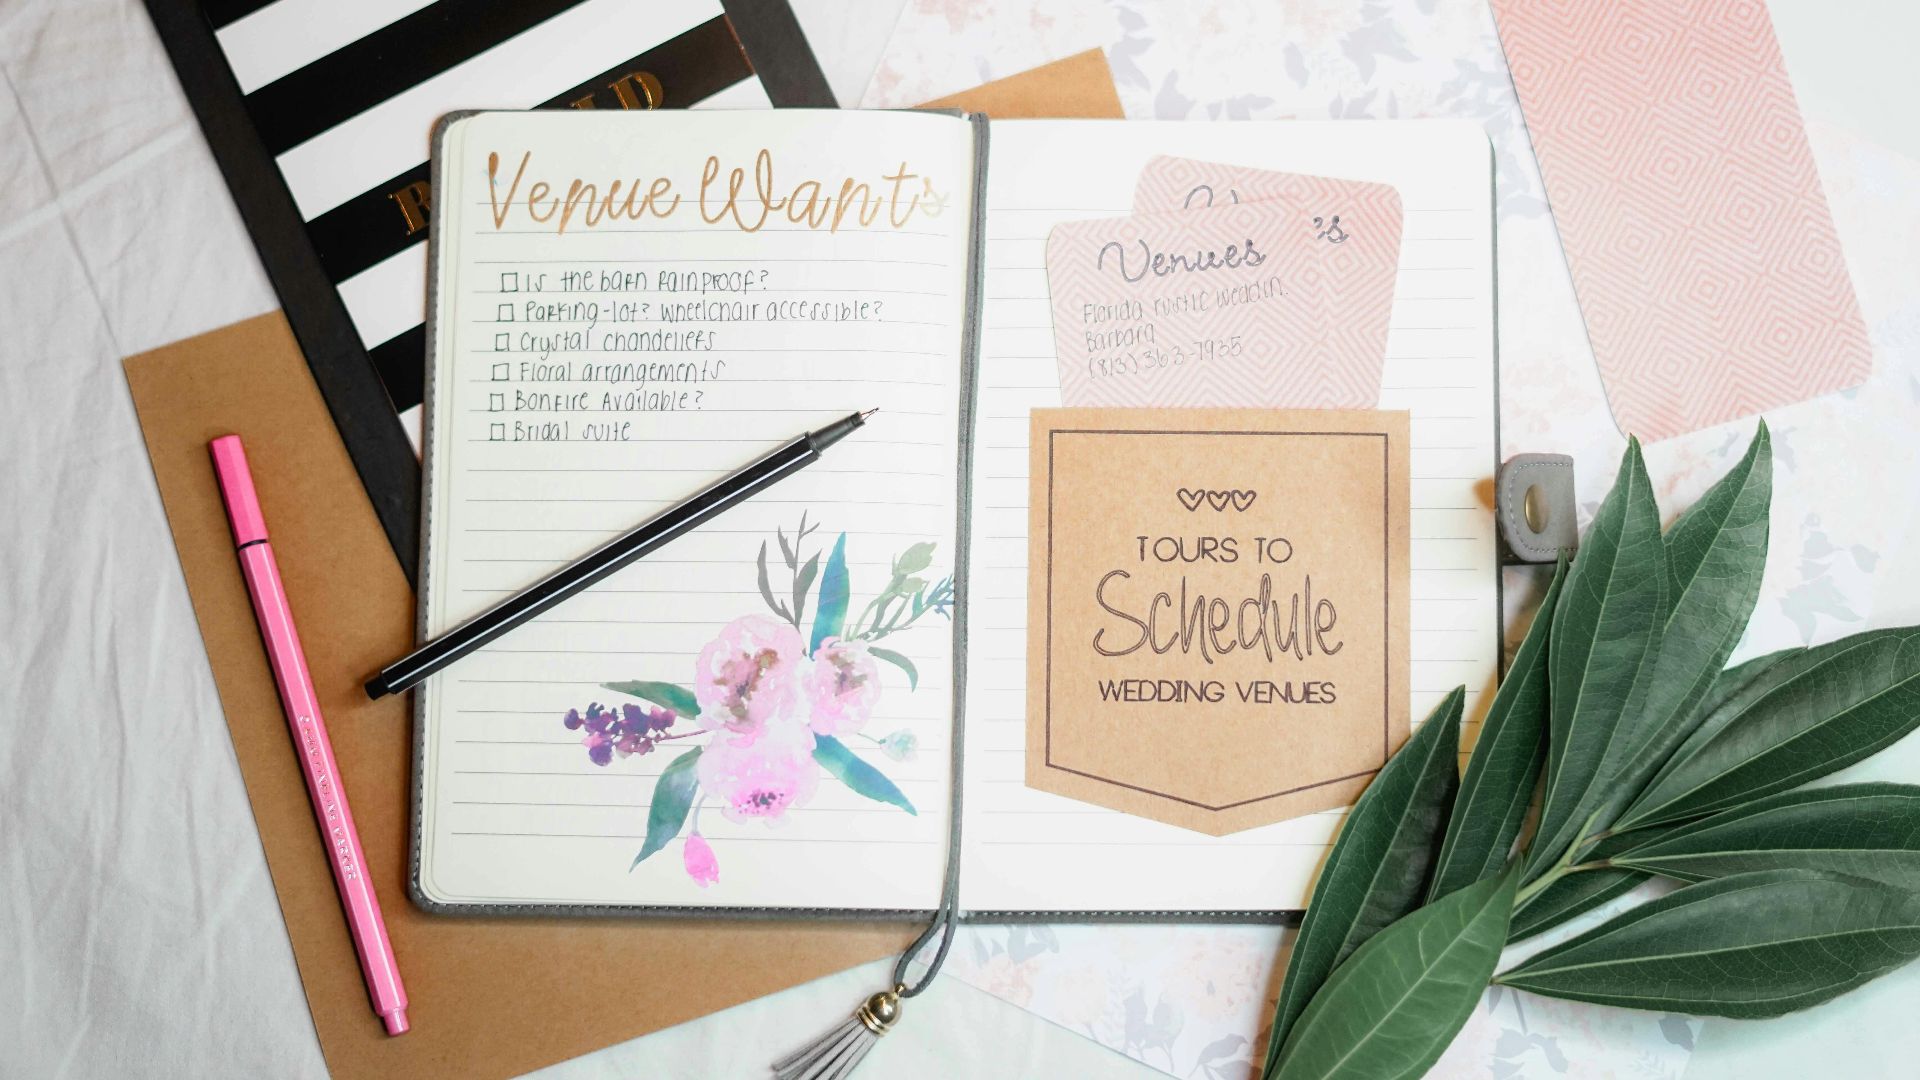 Venue Wants
Is the barn rainproof?
Parking-lot? wheelchair accessible?
Crystal chandeliers
Floral arrangements
Bonfire Available?
Bridal suite
's
Venues
Florida rustic weddin.
Barbara
(813) 363-7935
TOURS TO
Schedule
WEDDING VENUES